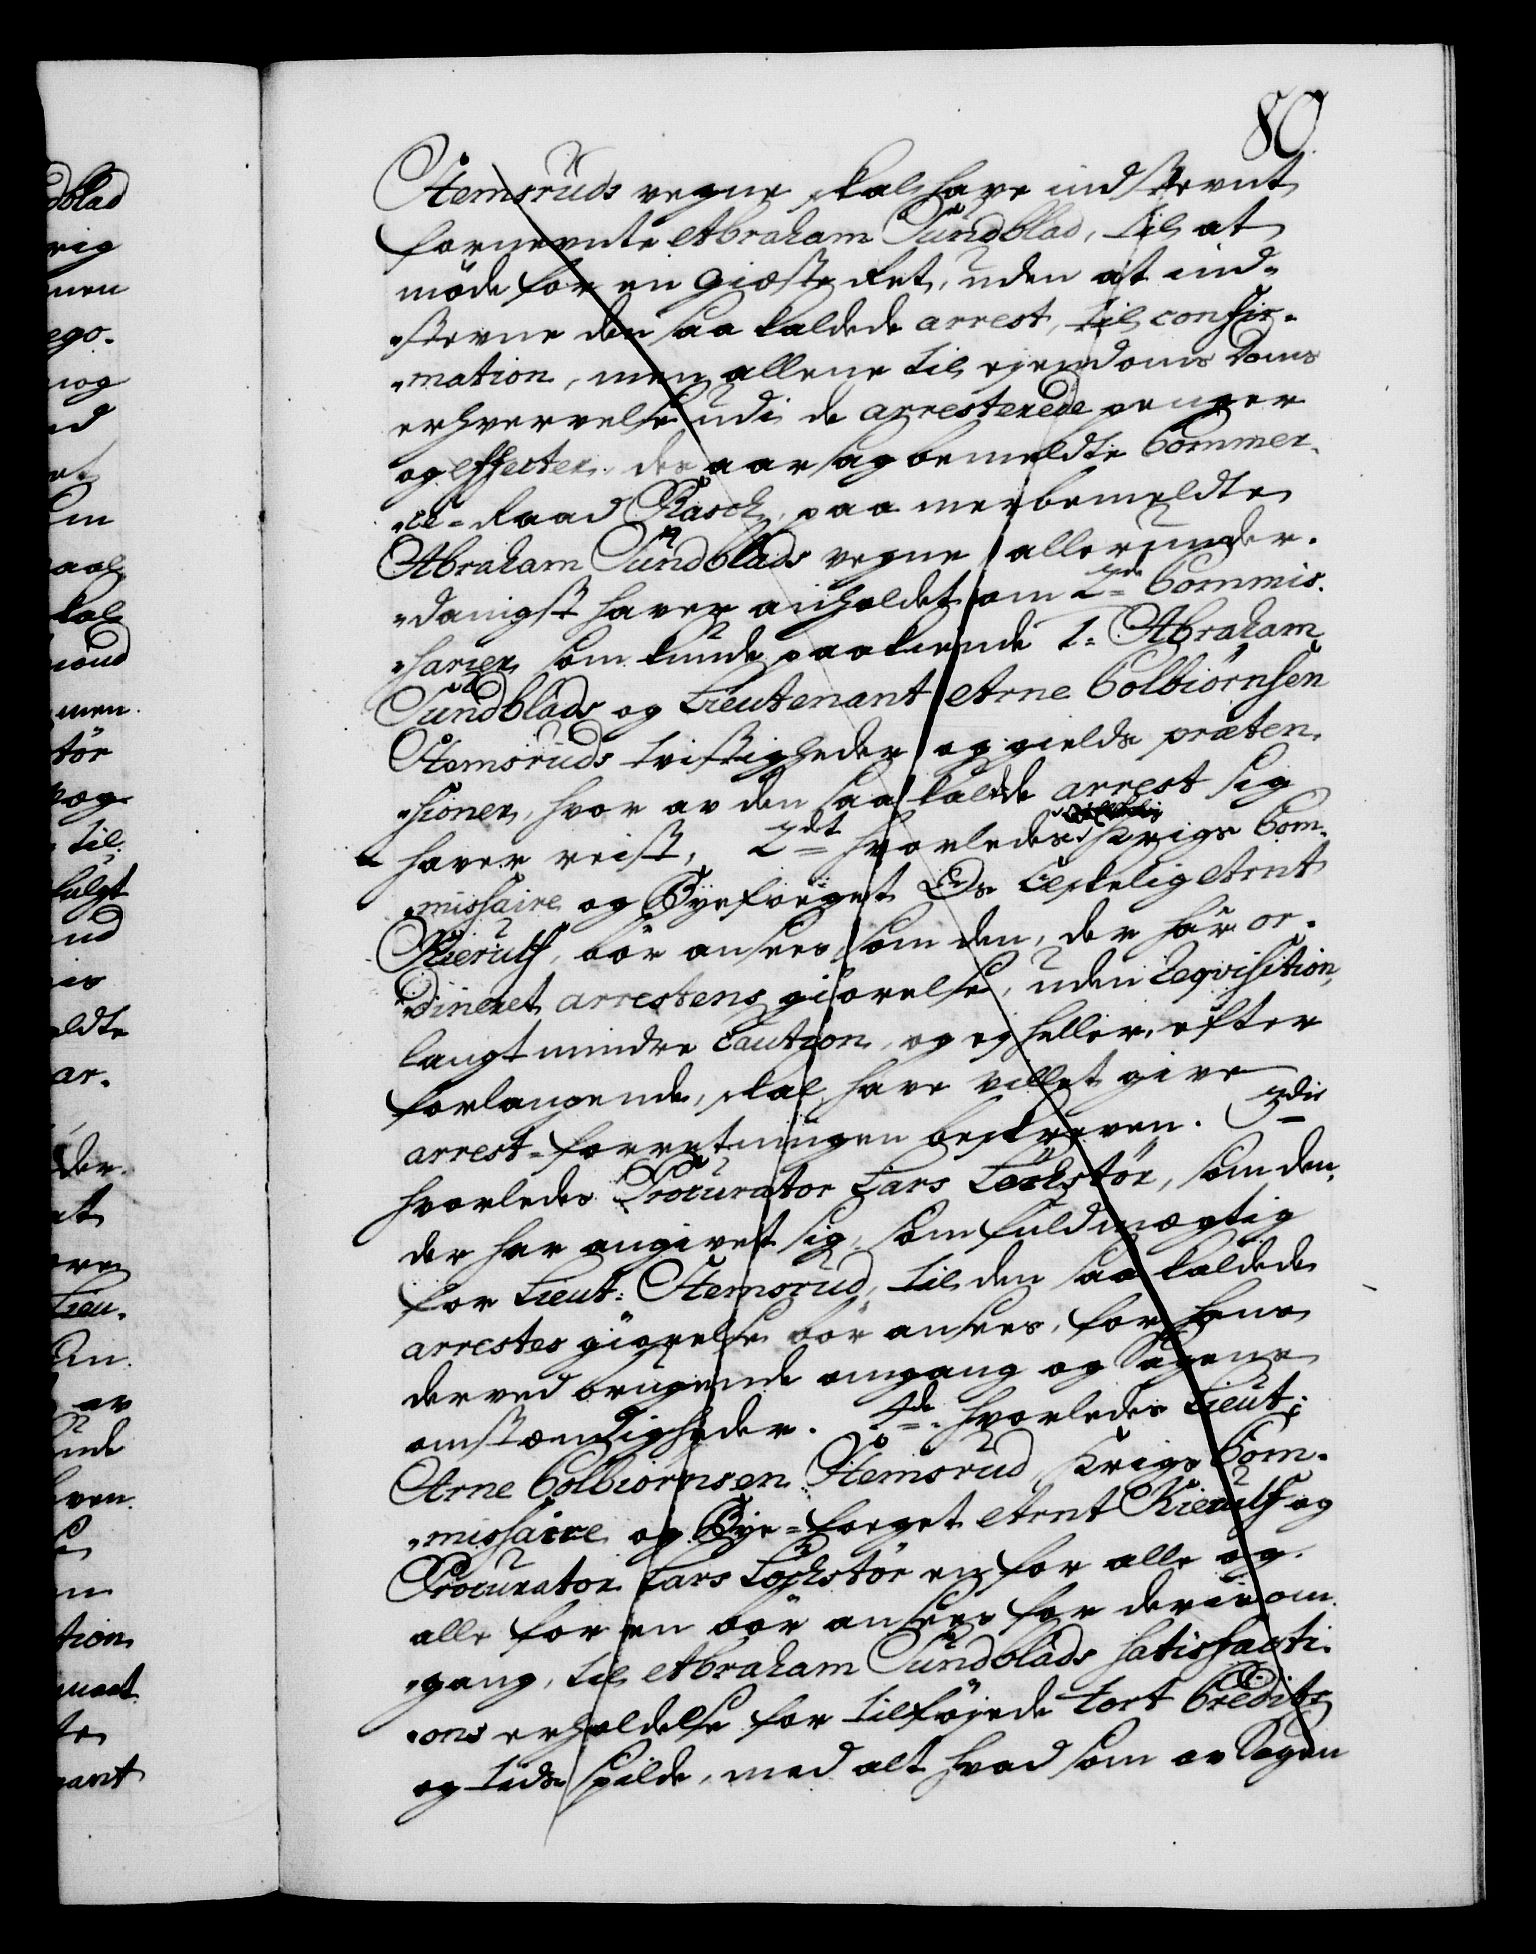 80
Stemsruds vegne skal have indstevnt
fornevnte Abraham Sundblad, til at
möde for en Giæste Ret, uden at ind-
stevne den saa kaldede arrest, til confir-
mation, men allene til ejendoms Doms
erhvervelse udi de arresterede penger
og effecter. der aarsag bemeldte Commer-
ce-Raad Rasch, paa merbemeldte
Abraham Sundblads vegne allerunder-
danigst haver anholdet om 2de Commis-
sarier som kunde paakiende 1. Abraham
Sundblads og Lieutenant Arne Colbiörnsen
Stemsruds tvistigheder og gields præten-
sioner, hvor av den saa kaldede arrest sig
haver reist, 2det hvorledes Krigs Com-
missaire og Byefoeget Os Elskelig Arnt
Kierulf, bör ansees, som den, der har or-
dineret arrestens giörelse, uden Reqvisition,
langt mindre Caution, og ej heller, efter
forlangende, skal have villet give
arrest-forretningen beskreven. 3die
hvorledes Procurator Lars Löchstör, som den,
der har angivet sig, som fuldmægtig
for Lieut: Stemsrud, til den saa kaldede
arrestes giörelse bör ansees, for hans
derved brugende omgang og Sagens
omstændigheder. 4de hvorledes Lieut:
Arne Colbiörnsen Stemsrud, Krigs Com-
missaire og Bye-foeget Arnt Kierulf og
Procurator Lars Löchstör en for alle og
alle for en bör ansees for deris om-
gang, til Abraham Sundblads satisfacti-
ons erholdelse for tilföjede Tort Credit
og tids spilde, med alt hvad som av Sagen